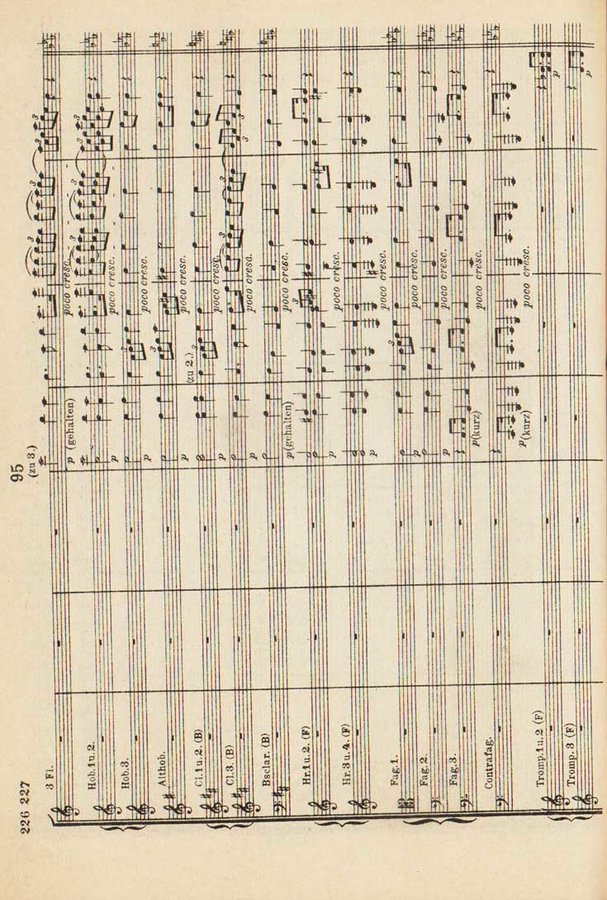 226 227
95
(zu 3.)
3 Fl.
p (gehalten)
poco cresc.
3
3
3
3
3
Hob.1u.2.
p
poco cresc.
3
3
3
Hob.3.
p
poco cresc.
Althob.
p
poco cresc.
Cl.1u.2. (B)
p
(zu 2.)
poco cresc.
Cl.3. (B)
p
poco cresc.
3
3
3
Bsclar. (B)
p (gehalten)
poco cresc.
Hr.1u.2. (F)
p
3
poco cresc.
Hr.3u.4. (F)
p
poco cresc.
Fag.1.
p
3
poco cresc.
Fag.2
p
poco cresc.
Fag.3.
p (kurz)
poco cresc.
Contrafag.
p (kurz)
poco cresc.
Tromp.1u.2 (F)
p
Tromp.3 (F)
p